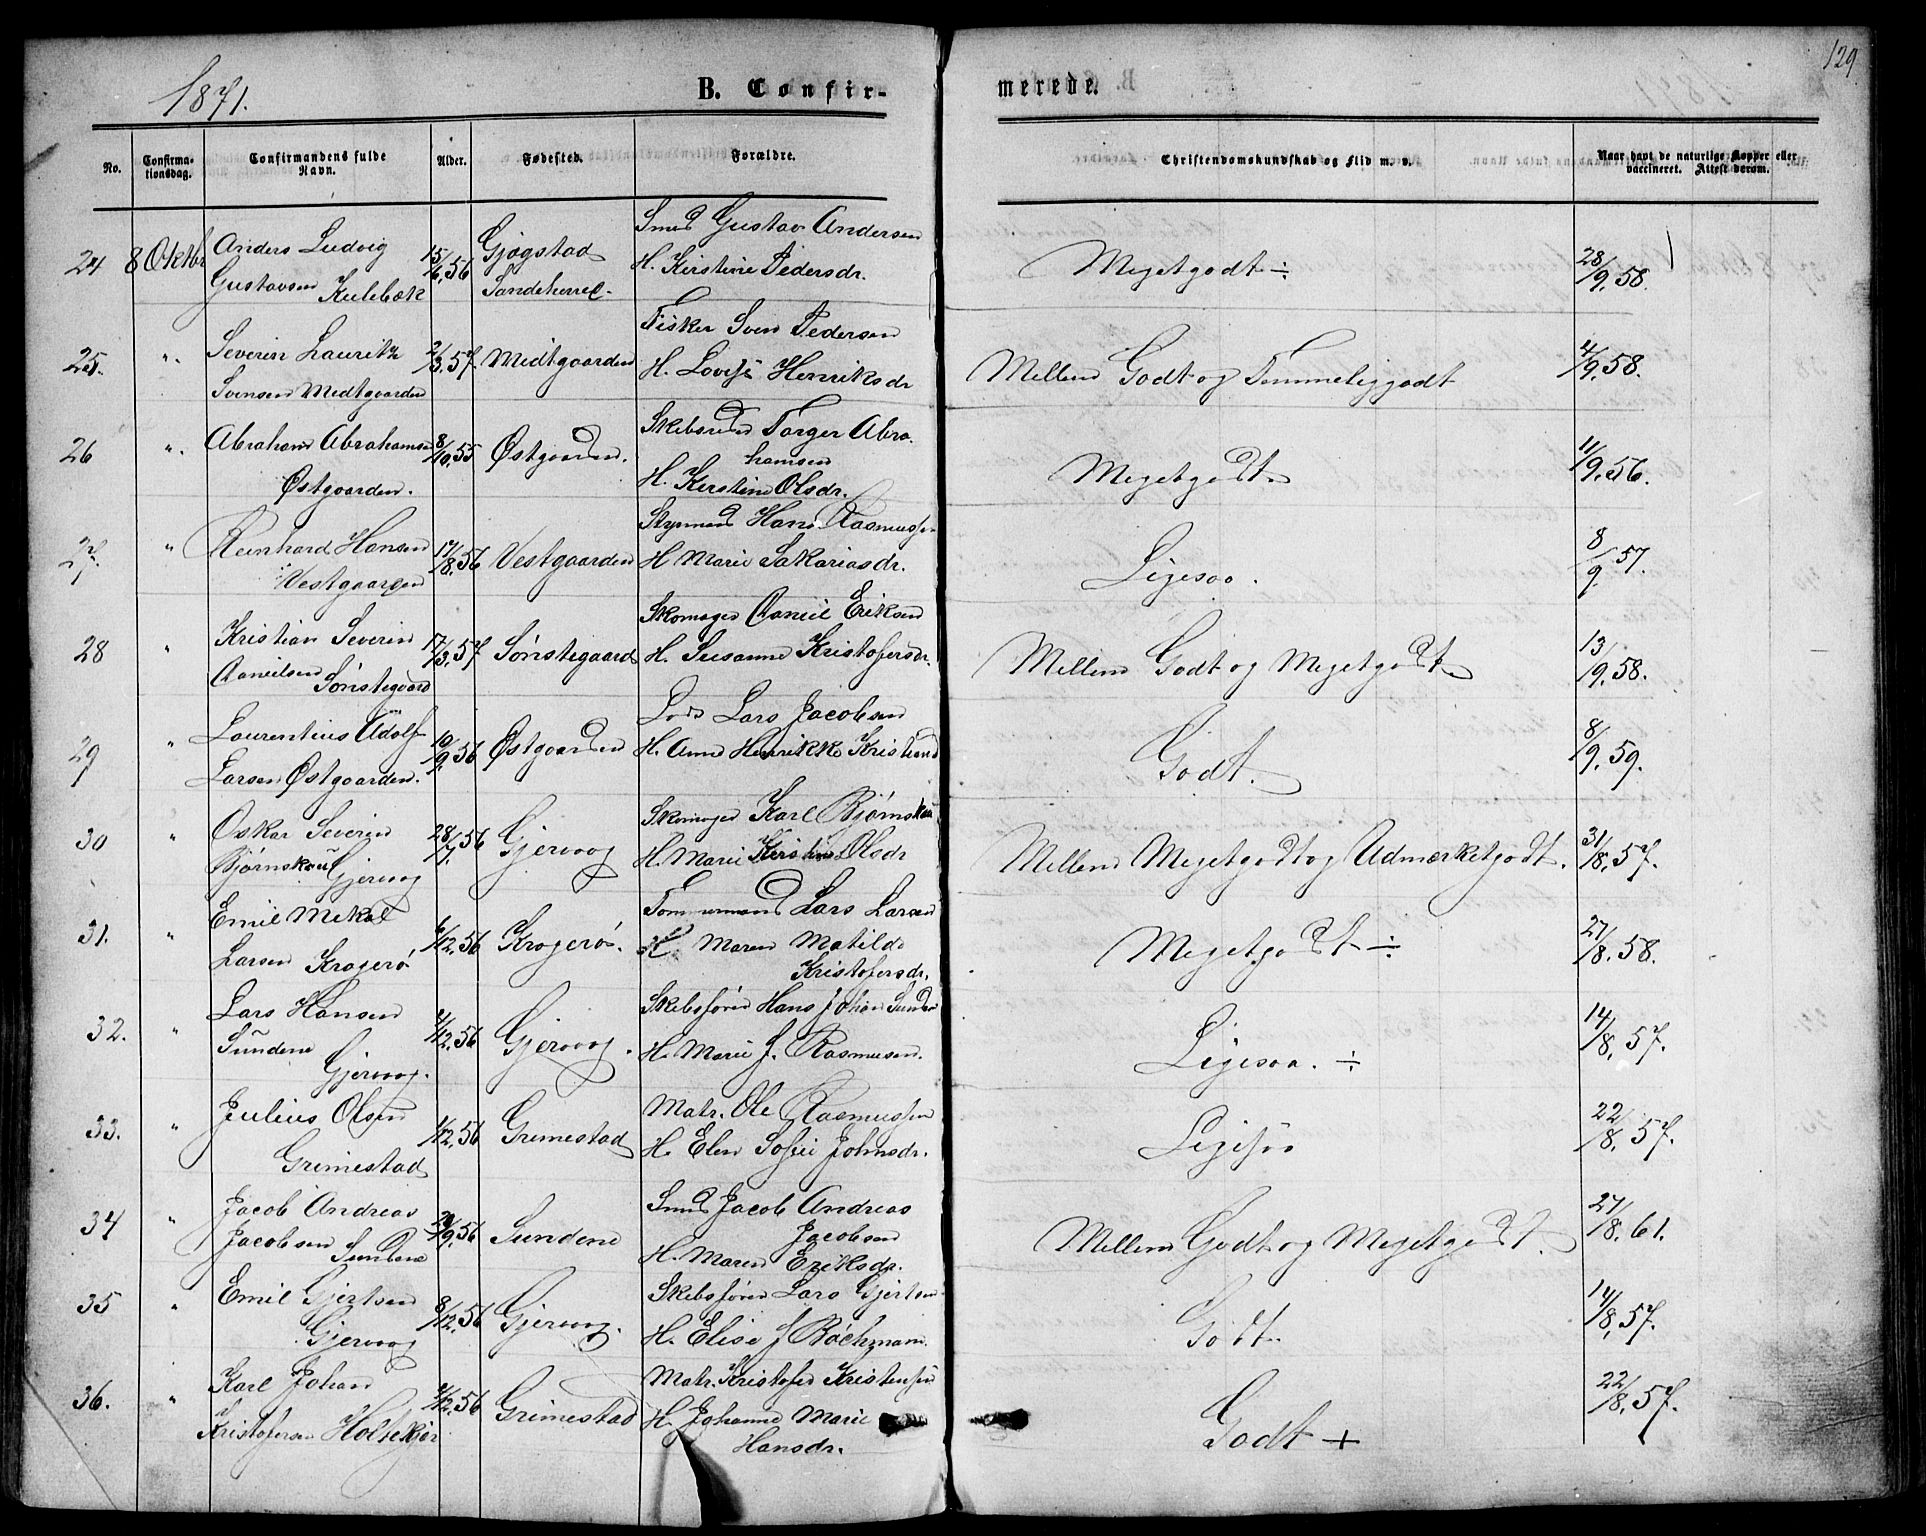 1871.
B. Confir-
merede.
129
No.
Confirma-
tionsdag.
Confirmandens fulde
Navn.
Alder.
Fødested.
Forældre.
Christendomskundskab og Flid m. v.
Naar havt de naturlige Kopper eller
vaccineret. Attest derom.
24 8 Oktbr Anders Ludvig Gustavsen Kulebæk 15/6.56 Gjøgstad Sandeherred. Smed Gustav Andersen H. Kirstine Pedersdr. Megetgodt ÷ 28/9.58.
25. ". Severin Lauritz Svensen Midtgaarden 2/3.57. Midtgaarden Fisker Sven Pedersen H. Lovise Henriksdr Mellem Godt og Temmeliggodt 4/9.58.
26 ". Abraham Abrahamsen Østgaarden. 8/10.55 Østgaarden. Skibstømmerm Torger Abrahamsen H. Kirstine Olsdr. Megetgodt. 11/9.56.
27. " Reinhard Hansen Vestgaarden 17/8.56 Vestgaarden Styrmand Hans Rasmussen H Marie Sakariasdr. Ligesaa. 8/9 57.
28 " Kristian Severin Danielsen Sønstegaard 17/3.57 Sønstegaard Skomager Daniel Eriksen H. Susanne Kristofersdr. Mellem Godt og Megetgodt. 13/9.58.
29 " Laurentius Adolf Larsen Østgaarden. 10/9.56 Østgaarden Lods Lars Jacobsen H. Anne Henrikke Kristiansd Godt. 8/9.59.
30 " Oskar Severin Bjørnskau Gjervog 28/7.56 Gjervog Skomager Karl Bjørnskau H. Marie Kirstine Olsdr Mellem Megetgodt og Udmærketgodt. 31/8.57.
31. " Emil Mikal Larsen Kragerø 6/12.56 Kragerø. Tømmermand Lars Larsen H. Maren Matilde Kristofersdr. Megetgodt ÷ 27/8.58.
32. " Lars Hansen Sundene Gjervog. 4/12.56 Gjervog. Skibsfører Hans Johan Sunden H. Marie J. Rasmusen. Ligesaa. ÷ 14/8.57.
33. " Julius Olsen Grimestad 1/12.56 Grimestad Matr. Ole Rasmussen H. Elen Sofie Johnsdr. Ligesaa 22/8.57.
34 " Jacob Andreas Jacobsen Sundene 29/9.56 Sundene Smed Jacob Andreas Jacobsen H. Maren Eriksdr. Mellem Godt og Megetgodt. 27/8.61.
35 " Emil Gjertsen Gjervog 8/12.56 Gjervog. Skibsfører Lars Gjertsen H. Elise J Bochmann. Godt. 14/8.57.
36. " Karl Johan Kristofersen Holtekjær 2/12.56 Grimestad Matr. Kristofer Kristensen H. Johanne Marie Hansdr. Godt + 22/8.57.